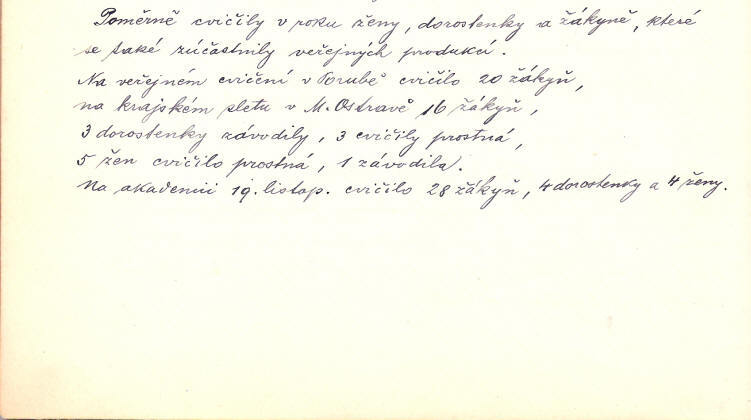 Poměrně cvičily v roku ženy, dorostenky a žákyně, které
se také zúčastnily veřejných produkcí.
Na veřejném cvičení v Porubě cvičilo 20 žákyň,
na krajském sletu v M. Ostravě 16 žákyň,
3 dorostenky závodily, 3 cvičily prostná,
5 žen cvičilo prostná, 1 závodila.
Na akademii 19. listop. cvičilo 28 žákyň, 4 dorostenky a 4 ženy.